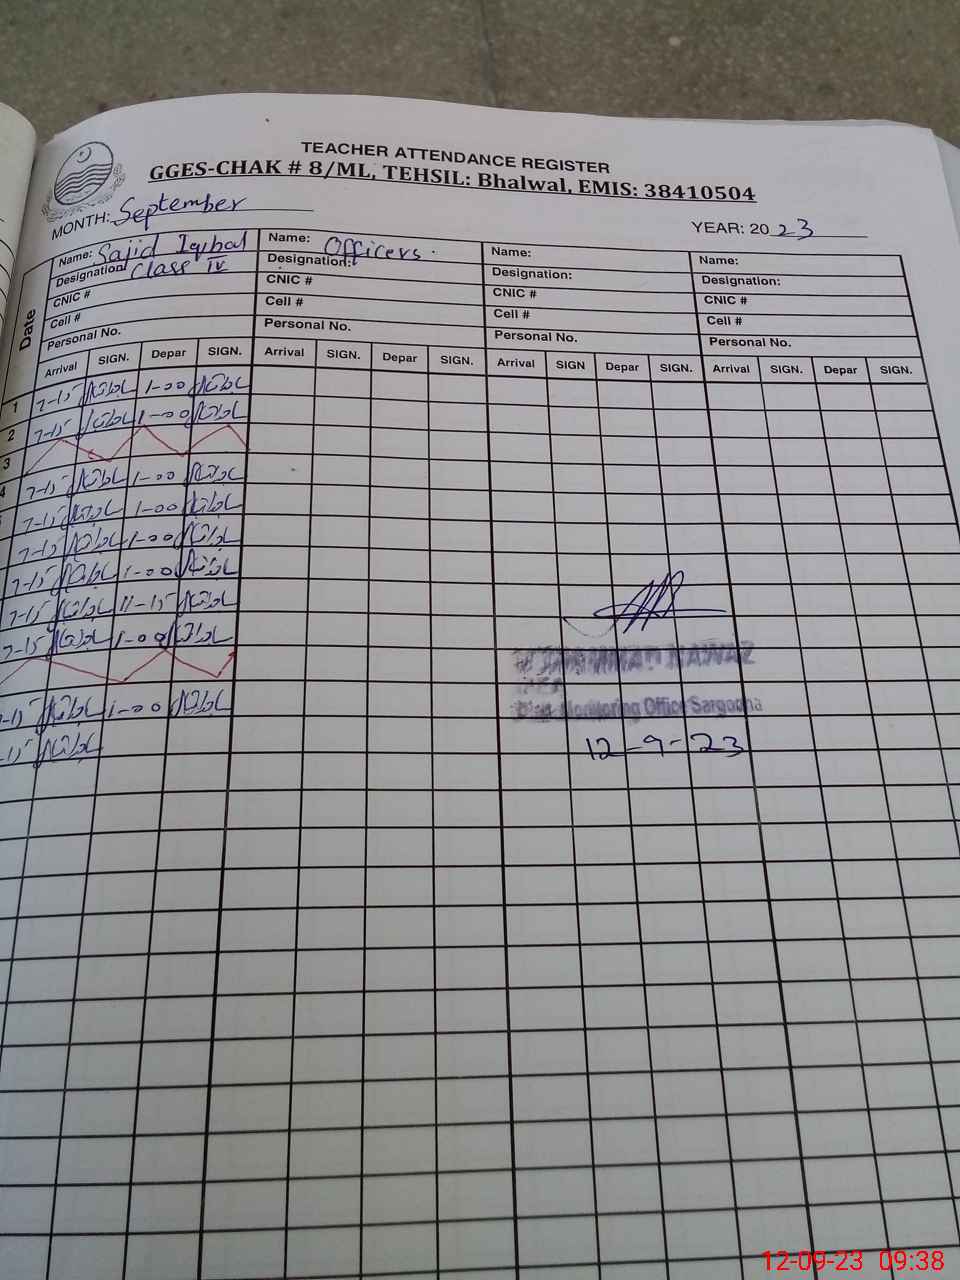 TEACHER ATTENDANCE REGISTER
GGES-CHAK # 8/ML, TEHSIL: Bhalwal, EMIS: 38410504
MONTH: September YEAR: 2023
Date
Name: Sajid Iqibal Name: Officers. Name: Name:
Designation Class IV Designation: Designation: Designation:
CNIC # CNIC # CNIC # CNIC #
Cell # Cell # Cell # Cell #
Personal No. Personal No. Personal No. Personal No.
Arrival SIGN. Depar SIGN. Arrival SIGN. Depar SIGN. Arrival SIGN Depar SIGN. Arrival SIGN. Depar SIGN.
1 7-15 1-00
2 7-15 1-00
3
4 7-15 1-00
7-15 1-00
7-15 1-00
7-15 1-00
7-15 11-15
7-15 1-00
-15 1-00
-15
NAWAZ
Monitoring Office Sargodha
12-9-23
12-09-23 09:38